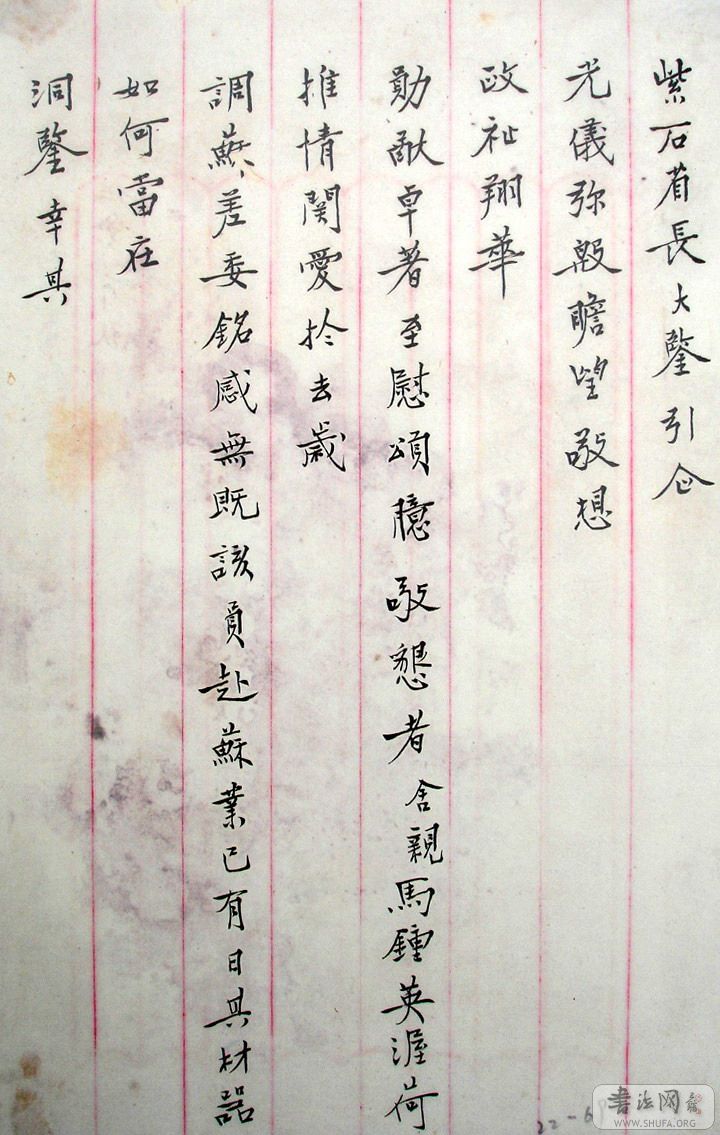 紫石省長大鑒引企
光儀弥殷瞻望敬想
政祉翔華
勛猷卓著至慰頌臆敬懇者舍親馬鍾英渥荷
推情関愛扵去歲
調蘇差委銘感無既該員赴蘇業已有日其材器
如何當在
洞鑒幸其
22-6
书法网
WWW.SHUFA.ORG